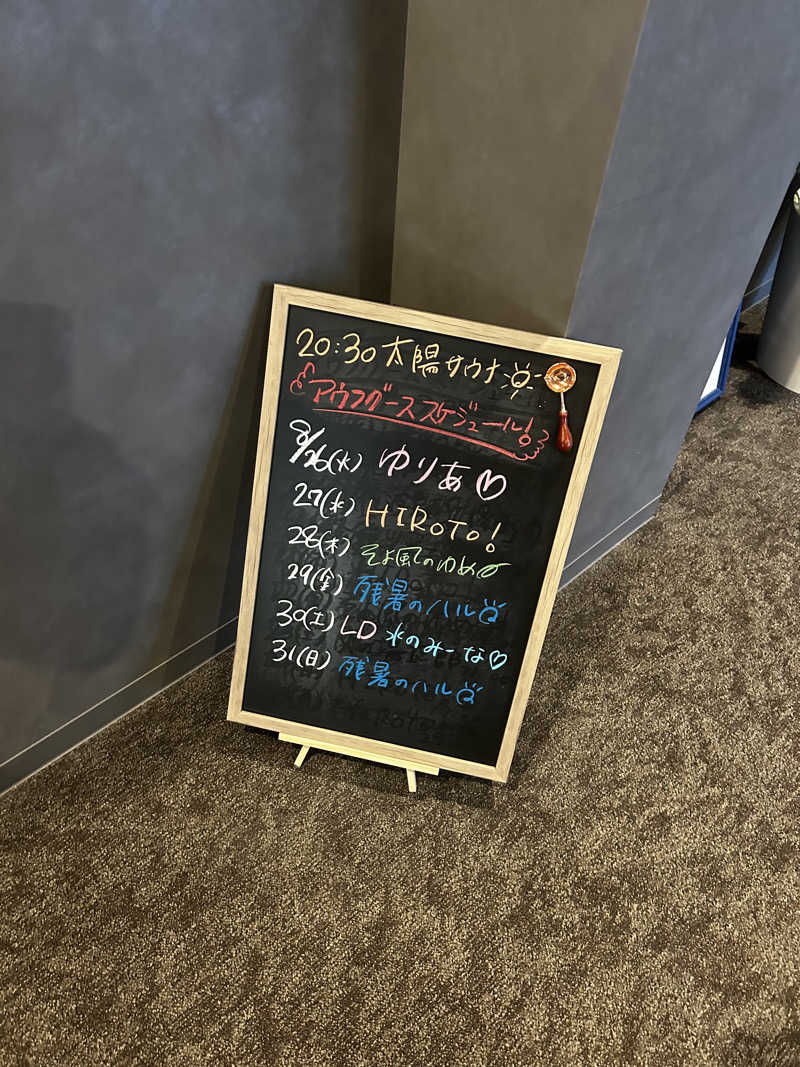 20:30 太陽サウナ
アウフグーススケジュール!
8/26(火) ゆりあ♡
27(水) HIROTO!
28(木) そよ風のゆめ
29(金) 残暑のハル
30(土) LD 水のみーな♡
31(日) 残暑のハル